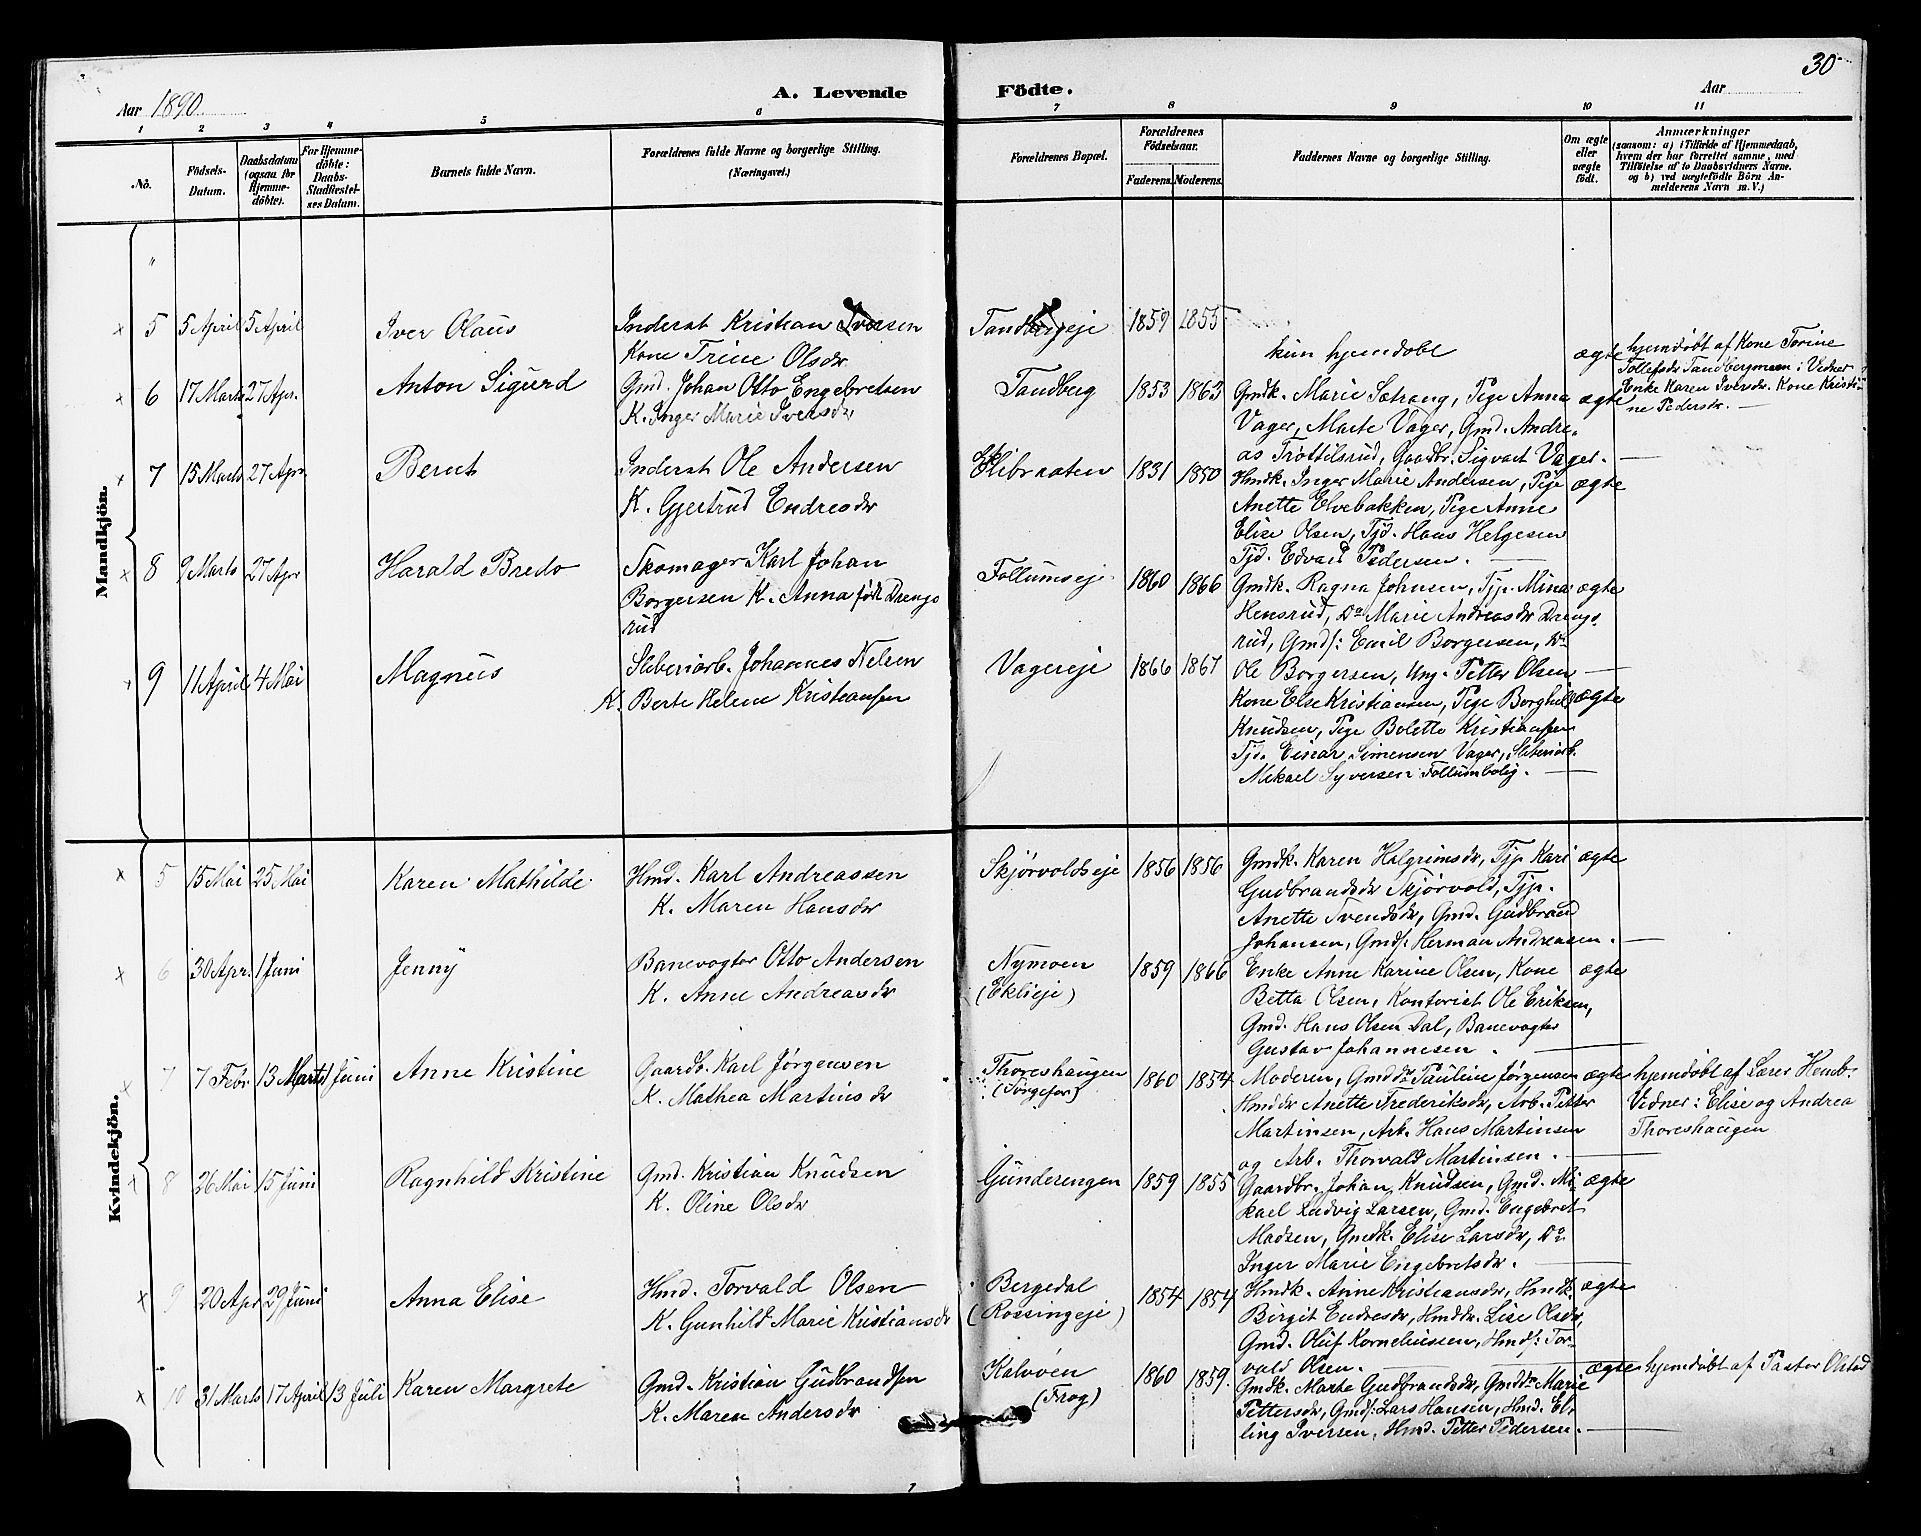 30
Aar 1890
A. Levende Födte.
Aar
1 2 3 4 5 6 7 8 9 10 11
No.
Födsels-Datum.
Daabsdatum (ogsaa for Hjemme-döbte).
For Hjemme-döbte: Daabs-Stadfæstel-ses Datum.
Barnets fulde Navn.
Forældrenes fulde Navne og borgerlige Stilling.
(Næringsvei.)
Forældrenes Bopæl.
Forældrenes Födselsaar.
Faderens. Moderens.
Faddernes Navne og borgerlige Stilling.
Om ægte eller uægte födt.
Anmærkninger
(saasom: a) i Tilfælde af Hjemmedaab, hvem der har forrettet samme, med Tilföielse af to Daabsvidners Navne. og b) ved uægtefödte Börn An-melderens Navn m. V.)
Mandkjön.
"
5 5 April 5 April Iver Olaus
Inderst Kristian Iversen
Kone Trine Olsdr
Tandbergeje 1859 1855
kun hjemdöbt
ægte
hjemdöbt af Kone Torine
Tollefsdr Tandbergmoen: Vidner
Enke Karen Iversdr. Kone Kristi-
ne Pedersdr. —
6 17 Marts 27 Apr. Anton Sigurd
Gmd. Johan Otto Engebretsen
K. Inger Marie Iversdr
Tandberg 1853 1863
Gmdk. Marie Sætrang, Pige Anna
Vager, Marte Vager, Gmd. Andre-
as Trøttilsrud, Gaardbr. Sigvart Vager. —
ægte
7 15 Marts 27 Apr. Bernt
Inderst Ole Andersen
K. Gjertrud Endresdr
Hlibraaten 1831 1850
Hmdk. Inger Marie Andersen, Pige
Anette Elvebakken, Pige Anne
Elise Olsen, Tjd. Hans Helgesen
Tjd. Edvard Pedersen. —
ægte
8 9 Marts 27 Apr Harald Bredo
Skomager Karl Johan
Borgersen K. Anna født Drengs
rud
Follumseje 1860 1866
Gmdk. Ragna Johnsen, Tjp. Mina
Hensrud, Do Marie Andreasdr Drengs
rud, Gmds: Emil Borgersen, Do
Ole Borgersen, Ung. Petter Olsen —
ægte
9 11 April 4 Mai Magnus
Sliberiarb. Johannes Nelsen
K. Berte Helene Kristiansen
Vagereje 1866 1867
Kone Else Kristiansen, Pige Borghild
Knudsen, Pige Bolette Kristiansen
Tjd. Einar Simensen Vager, Sliberiarb.
Mikael Syversen Follumbolig. —
ægte
Kvindekjön.
5 15 Mai 25 Mai Karen Mathilde
Hmd. Karl Andreassen
K. Maren Hansdr
Skjørvoldseje 1856 1856
Gmdk. Karen Halgrimsdr, Tjp. Kari
Gudbrandsdr Skjørvold, Tjp.
Anette Svendsdr, Gmd. Gudbrand
Johansen, Gmds: Herman Andreassen. —
ægte
6 30 Apr. 1 Juni Jenny
Banevogter Otto Andersen
K. Anne Andreasdr
Nymoen
(Eklieje)
1859 1866
Enke Anne Karine Olsen, Kone
Betta Olsen, Kontorist Ole Eriksen,
Gmd. Hans Olsen Dal, Banevogter
Gustav Johannesen. —
ægte
7 7 Febr 13 Marts 1 Juni Anne Kristine
Gaardb. Karl Jørgensen
K. Mathea Martinsdr
Thoreshaugen
(Sørgefos)
1860 1854
Moderen, Gmddr Pauline Jørgensen
Hmddr Anette Frederiksdr, Arb. Petter
Martinsen, Arb. Hans Martinsen
og Arb. Thorvald Martinsen. —
ægte
hjemdöbt af Lærer Homb.
Vidner: Elise og Andrea
Thoreshaugen
8 26 Mai 15 Juni Ragnhild Kristine
Gmd. Kristian Knudsen
K. Oline Olsdr
Gunderengen 1859 1855
Gaardbr. Johan Knudsen, Gmd. Mi-
kael Ludvig Larsen, Gmd. Engebret
Madsen, Gmdk. Elise Larsdr, Do
Inger Marie Engebretsdr. —
ægte
9 20 Apr 29 Juni Anna Elise
Hmd. Torvald Olsen
K. Gunhild Marie Kristiansdr
Bergedal
(Rossingeje)
1854 1854
Hmdk. Anne Kristiansdr, Hmdk.
Birgit Endresdr, Hmddr. Lise Olsdr,
Gmd. Oluf Korneliussen, Hmds: Tor-
vald Olsen. —
ægte
10 31 Marts 17 April 13 Juli Karen Margrete
Gmd. Kristian Gudbrandsen
K. Maren Andersdr
Kalvøen
(Frog)
1860 1859.
Gmdk. Marte Gudbrandsdr, Gmddr Marie
Pettersdr, Gmds: Lars Hansen, Hmd. El-
ling Iversen, Hmd. Petter Pedersen. —
ægte
hjemdöbt af Pastor Olstad